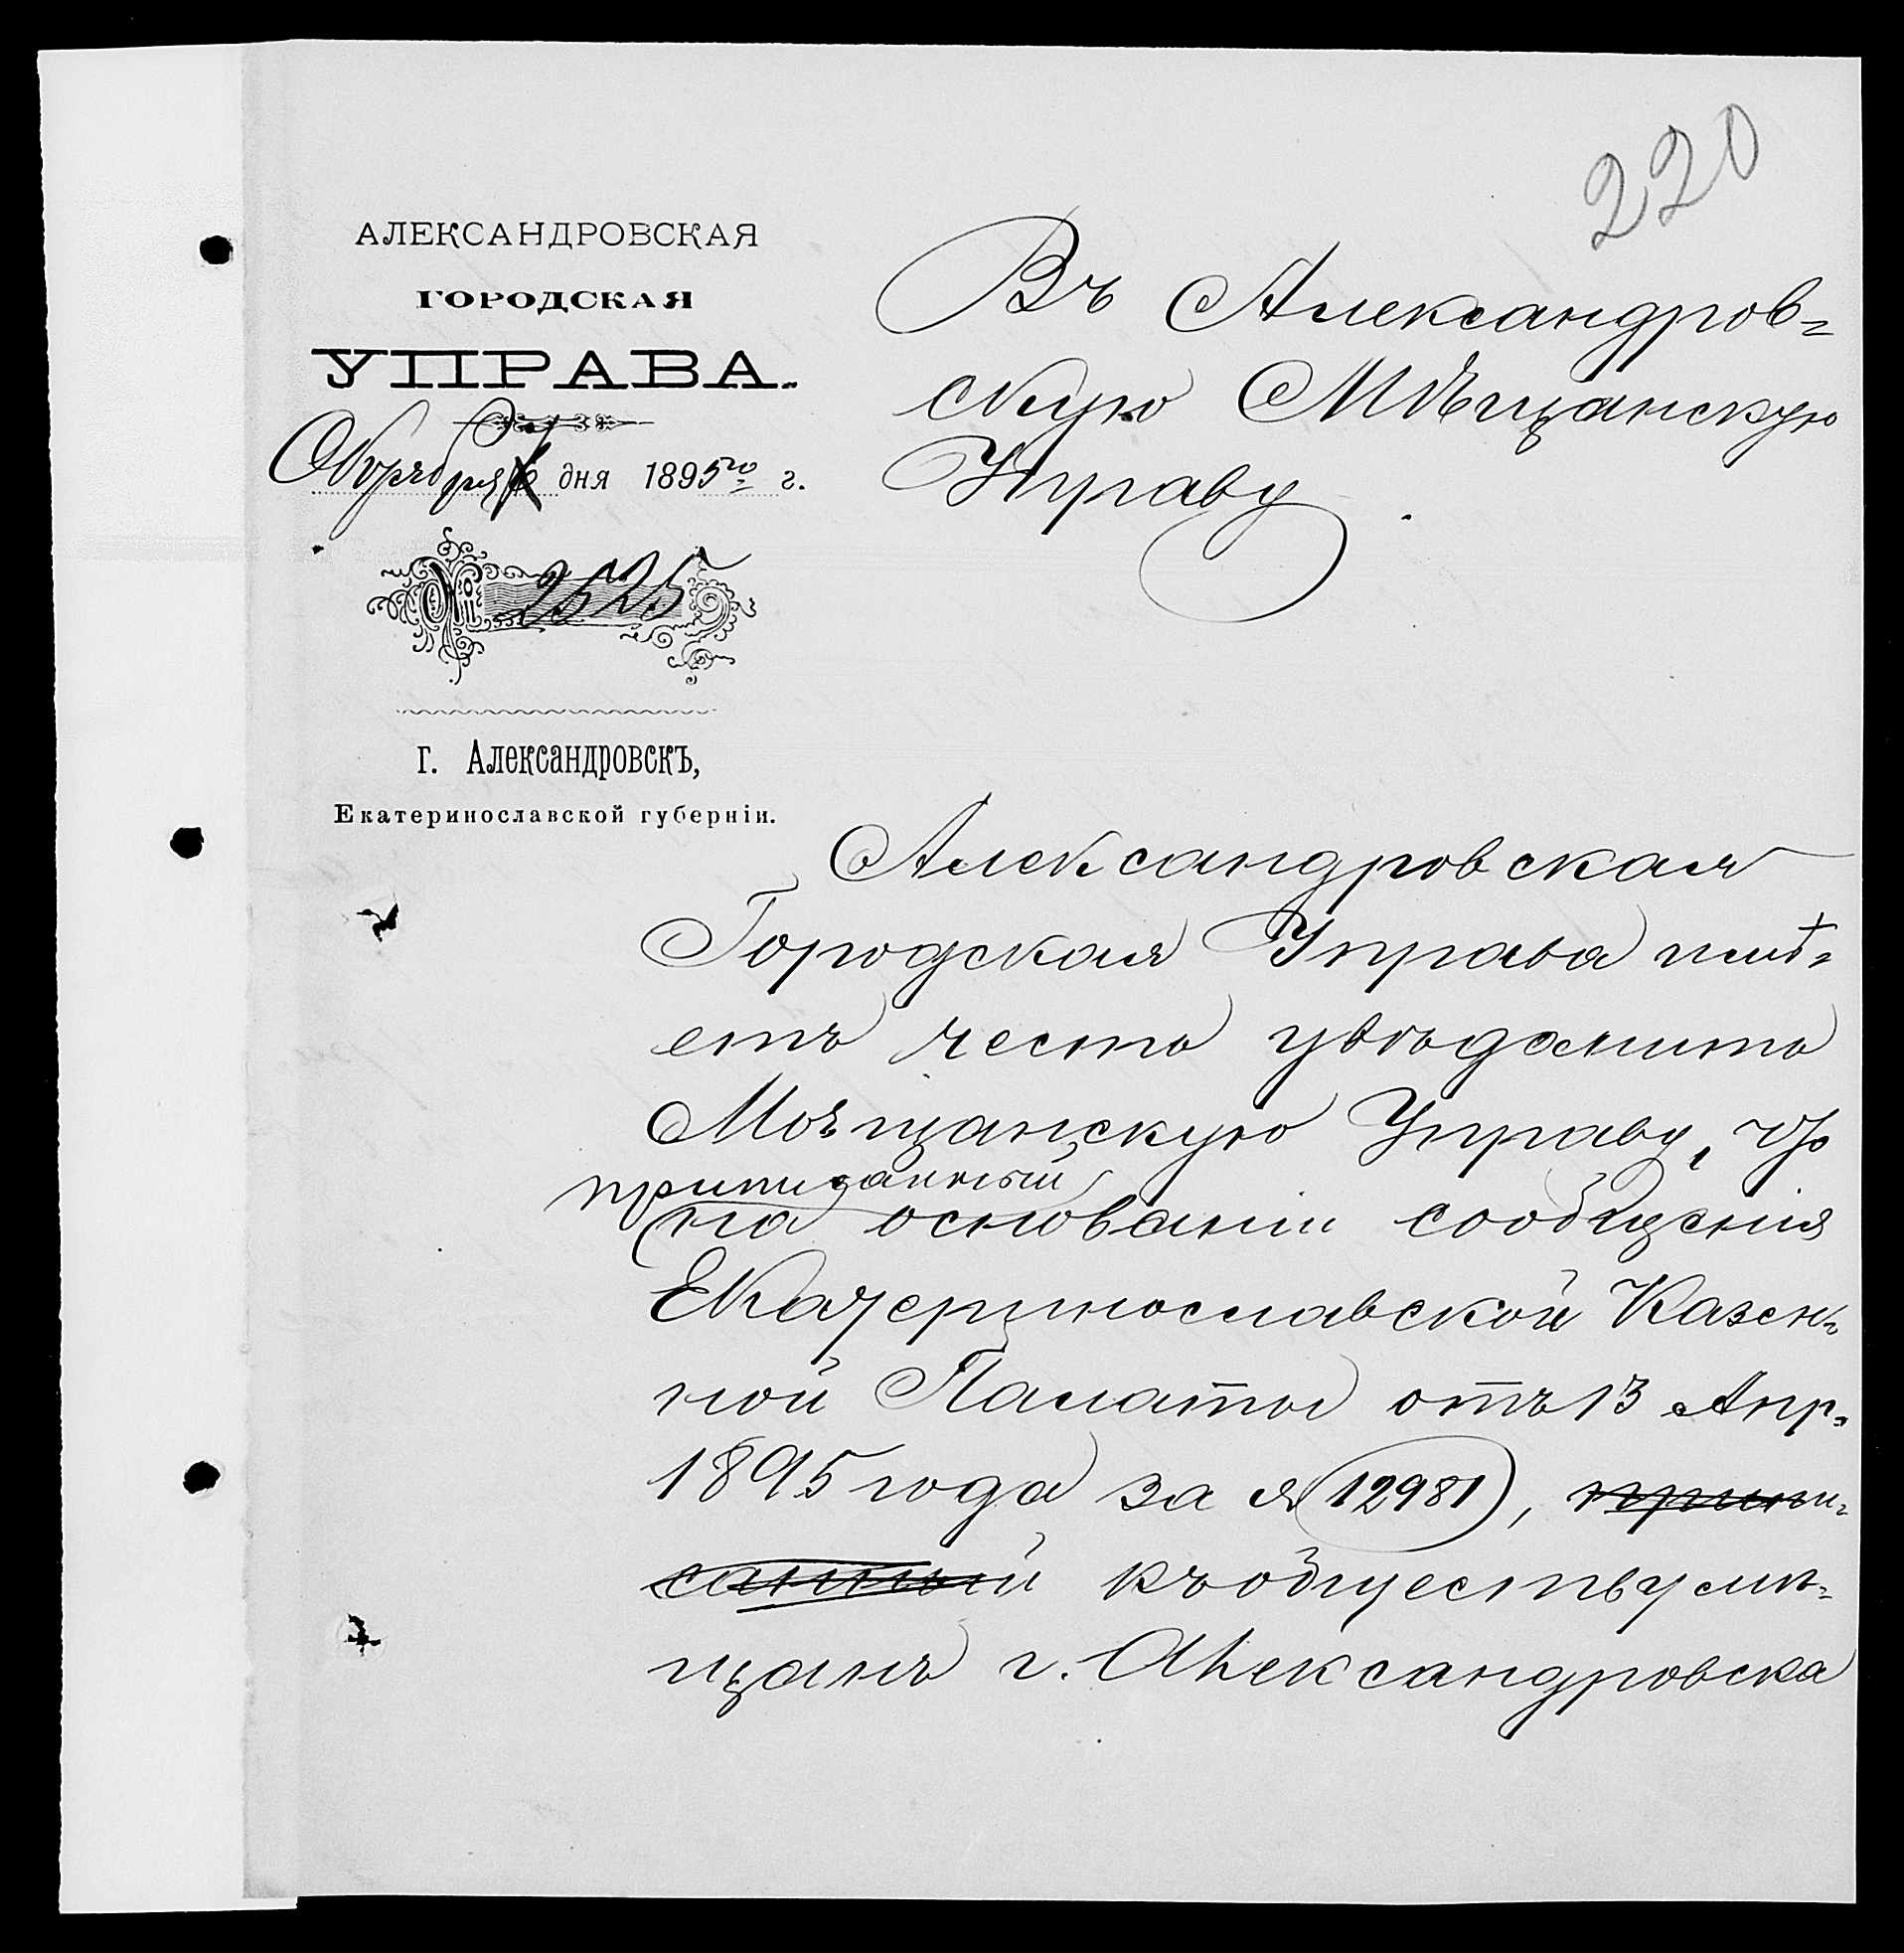 220
АЛЕКСАНДРОВСКАЯ
ГОРОДСКАЯ
УПРАВА.
дня 1895го г.
№ 2525
г. Александровскъ,
Екатеринославской губерніи.
Въ Александров-
скую Мѣщанскую
Управу
Александровская
Городская Управа имѣ-
етъ честь увѣдомить
Мѣщанскую Управу, что
приписанный
на основаніи сообщенія
Екатеринославской Казен-
ной Палаты отъ 13 Апр.
1895 года за № 12981, припи-
санный къ обществу мѣ-
щанъ г. Александровска